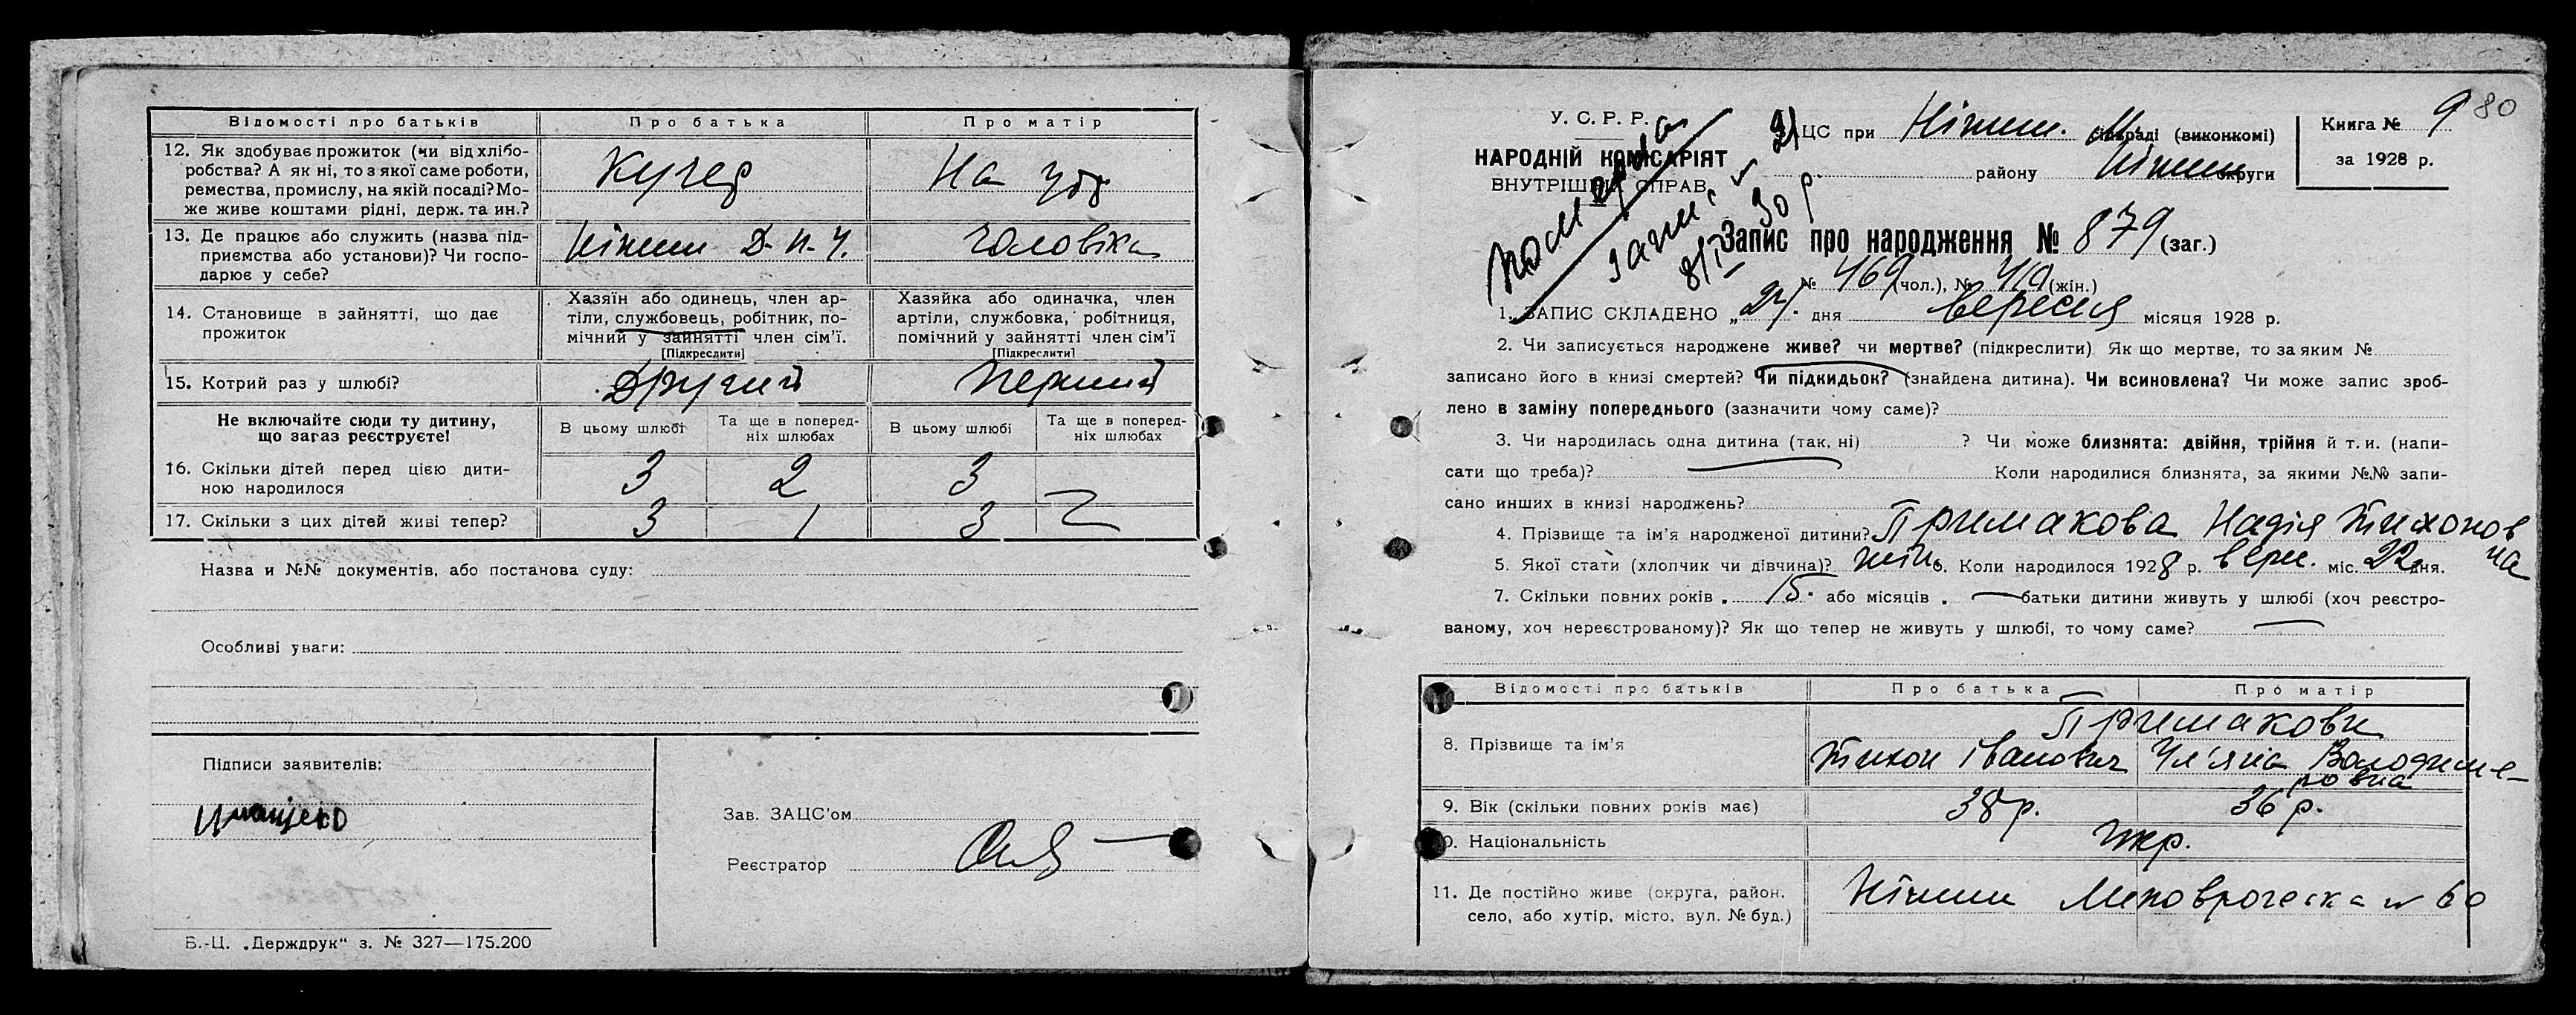 Відомості про батьків Про батька Про матір
12. Як здобуває прожиток (чи від хлібо-
робства? А як ні, то з якої саме роботи,
ремества, промислу, на якій посаді? Мо-
же живе коштами рідні, держ. та ин.?
Кучер На утр
13. Де працює або служить (назва під-
приємства або установи)? Чи госпо-
дарює у себе?
Ніжин Д. П. У. чоловіка
14. Становище в зайнятті, що дає
прожиток
Хазяїн або одинець, член ар-
тіли, службовець, робітник, по-
мічний у зайнятті член сім’ї.
[Підкреслити]
Хазяйка або одиначка, член
артіли, службовка, робітниця,
помічний у зайнятті член сім’ї
[Підкреслити]
15. Котрий раз у шлюбі? Другий Перший
Не включайте сюди ту дитину,
що загаз реєструєте!
В цьому шлюбі Та ще в поперед-
ніх шлюбах В цьому шлюбі Та ще в поперед-
ніх шлюбах
16. Скільки дітей перед цією дити-
ною народилося
3 2 3
17. Скільки з цих дітей живі тепер? 3 1 3
Назва и №№ документів, або постанова суду:
Особливі уваги:
Підписи заявителів:
Зав. ЗАЦС’ом
Реєстратор
Б.-Ц. „Держдрук“ з. № 327—175.200
80
У. С. Р. Р.
НАРОДНІЙ КОМІСАРІЯТ
ВНУТРІШНІХ СПРАВ
ЗАЦС при Ніжин. М. сільраді (виконкомі)
району Ніжин округи
Книга № 9
за 1928 р.
30 р.
Запис про народження № 879 (заг.)
№ 469 (чол.), № 410 (жін.)
1. ЗАПИС СКЛАДЕНО „27. дня вересня місяця 1928 р.
2. Чи записується народжене живе? чи мертве? (підкреслити) Як що мертве, то за яким №
записано його в книзі смертей? Чи підкидьок? (знайдена дитина). Чи всиновлена? Чи може запис зроб-
лено в заміну попереднього (зазначити чому саме)?
3. Чи народилась одна дитина (так, ні) ? Чи може близнята: двійня, трійня й т. и. (напи-
сати що треба)? Коли народилися близнята, за якими №№ запи-
сано инших в книзі народжень?
4. Прізвище та ім’я народженої дитини? Примакова Надія Тихонов
на
5. Якої стати (хлопчик чи дівчина)? жін. 6. Коли народилося 1928 р. верес. міс. 22 дня.
7. Скільки повних років 15. або місяців — батьки дитини живуть у шлюбі (хоч реєстро-
ваному, хоч нереєстрованому)? Як що тепер не живуть у шлюбі, то чому саме? —
Відомості про батьків Про батька Про матір
Примакови
8. Прізвище та ім’я Тихон Іванович Ул’яна Володими-
ровна
9. Вік (скільки повних років має) 38 р. 36 р.
10. Національність Укр.
11. Де постійно живе (округа, район,
село, або хутір, місто, вул. № буд.)
Ніжин № 60